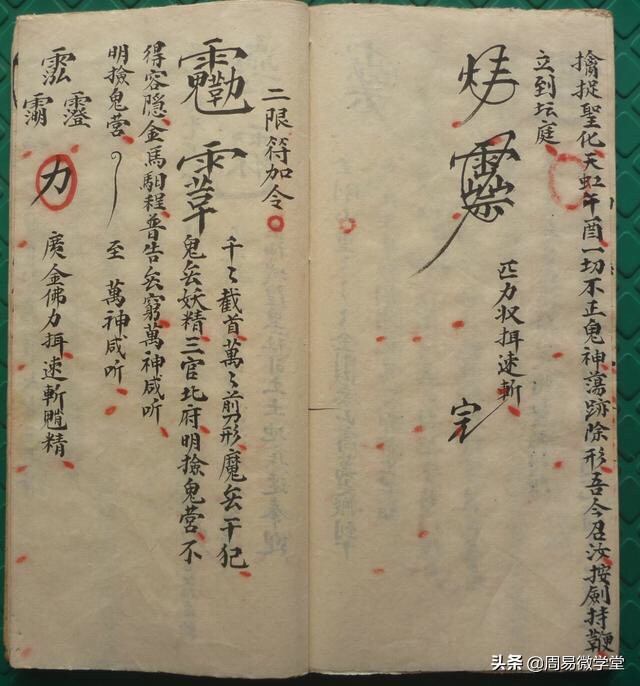 擒捉聖化天虹午酉一切不正鬼神蕩跡除形吾今召汝按劍持鞭
立到坛庭
匹力収揖速斬
二限符加令
千〻截首萬〻剪形魔兵干犯
鬼兵妖精三官北府明撿鬼营不
得容隐金馬馹程普告兵窮萬神咸听
明撿鬼营 至 萬神咸听
力 廣金佛力揖速斬精
头条 @周易微学堂